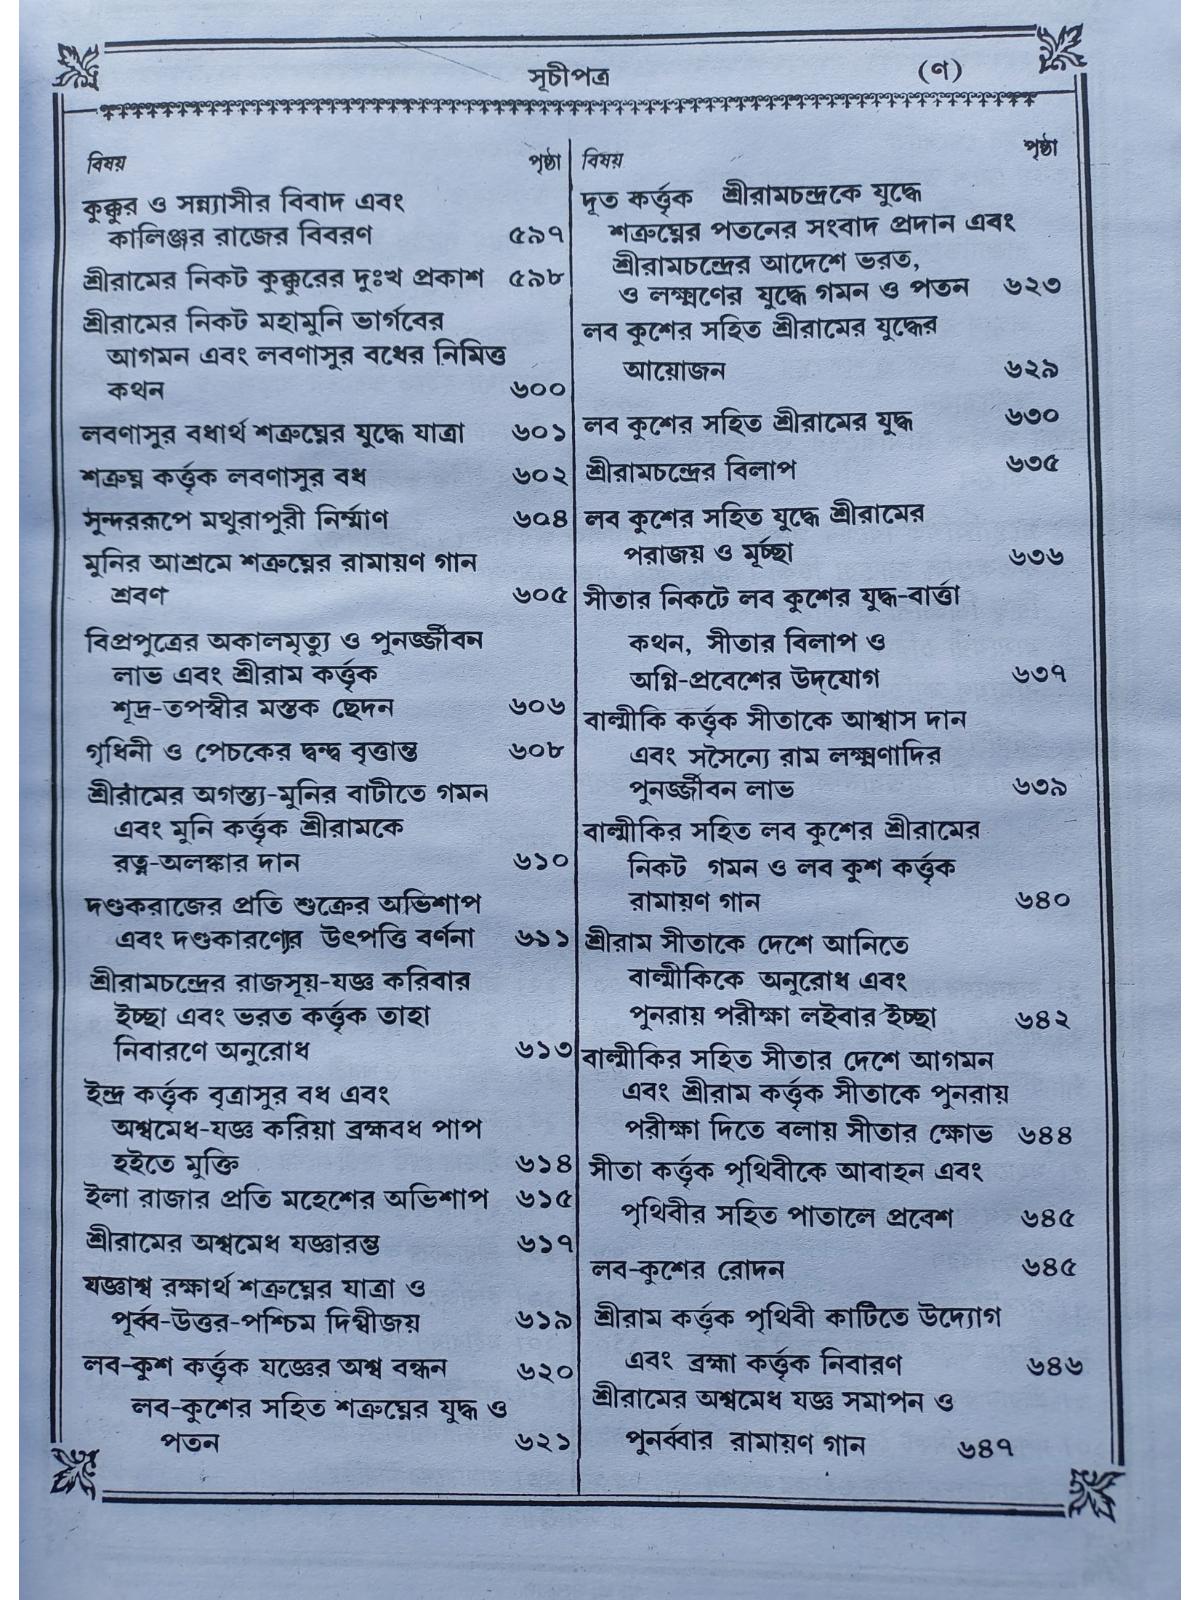 সূচীপত্র (ণ)
বিষয় পৃষ্ঠা
কুক্কুর ও সন্ন্যাসীর বিবাদ এবং
কালিঞ্জর রাজের বিবরণ ৫৯৭
শ্রীরামের নিকট কুক্কুরের দুঃখ প্রকাশ ৫৯৮
শ্রীরামের নিকট মহামুনি ভার্গবের
আগমন এবং লবণাসুর বধের নিমিত্ত
কথন ৬০০
লবণাসুর বধার্থ শত্রুঘ্নের যুদ্ধে যাত্রা ৬০১
শত্রুঘ্ন কর্ত্তৃক লবণাসুর বধ ৬০২
সুন্দররূপে মথুরাপুরী নির্ম্মাণ ৬০৪
মুনির আশ্রমে শত্রুঘ্নের রামায়ণ গান
শ্রবণ ৬০৫
বিপ্রপুত্রের অকালমৃত্যু ও পুনর্জ্জীবন
লাভ এবং শ্রীরাম কর্ত্তৃক
শূদ্র-তপস্বীর মস্তক ছেদন ৬০৬
গৃধিনী ও পেচকের দ্বন্দ্ব বৃত্তান্ত ৬০৮
শ্রীরামের অগস্ত্য-মুনির বাটীতে গমন
এবং মুনি কর্ত্তৃক শ্রীরামকে
রত্ন-অলঙ্কার দান ৬১০
দণ্ডকরাজের প্রতি শুক্রের অভিশাপ
এবং দণ্ডকারণ্যের উৎপত্তি বর্ণনা ৬১১
শ্রীরামচন্দ্রের রাজসূয়-যজ্ঞ করিবার
ইচ্ছা এবং ভরত কর্ত্তৃক তাহা
নিবারণে অনুরোধ ৬১৩
ইন্দ্র কর্ত্তৃক বৃত্রাসুর বধ এবং
অশ্বমেধ-যজ্ঞ করিয়া ব্রহ্মবধ পাপ
হইতে মুক্তি ৬১৪
ইলা রাজার প্রতি মহেশের অভিশাপ ৬১৫
শ্রীরামের অশ্বমেধ যজ্ঞারম্ভ ৬১৭
যজ্ঞাশ্ব রক্ষার্থ শত্রুঘ্নের যাত্রা ও
পূর্ব্ব-উত্তর-পশ্চিম দিগ্বীজয় ৬১৯
লব-কুশ কর্ত্তৃক যজ্ঞের অশ্ব বন্ধন ৬২০
লব-কুশের সহিত শত্রুঘ্নের যুদ্ধ ও
পতন ৬২১
বিষয় পৃষ্ঠা
দূত কর্ত্তৃক শ্রীরামচন্দ্রকে যুদ্ধে
শত্রুঘ্নের পতনের সংবাদ প্রদান এবং
শ্রীরামচন্দ্রের আদেশে ভরত,
ও লক্ষ্মণের যুদ্ধে গমন ও পতন ৬২৩
লব কুশের সহিত শ্রীরামের যুদ্ধের
আয়োজন ৬২৯
লব কুশের সহিত শ্রীরামের যুদ্ধ ৬৩০
শ্রীরামচন্দ্রের বিলাপ ৬৩৫
লব কুশের সহিত যুদ্ধে শ্রীরামের
পরাজয় ও মূর্চ্ছা ৬৩৬
সীতার নিকটে লব কুশের যুদ্ধ-বার্ত্তা
কথন, সীতার বিলাপ ও
অগ্নি-প্রবেশের উদ্‌যোগ ৬৩৭
বাল্মীকি কর্ত্তৃক সীতাকে আশ্বাস দান
এবং সসৈন্যে রাম লক্ষ্মণাদির
পুনর্জ্জীবন লাভ ৬৩৯
বাল্মীকির সহিত লব কুশের শ্রীরামের
নিকট গমন ও লব কুশ কর্ত্তৃক
রামায়ণ গান ৬৪০
শ্রীরাম সীতাকে দেশে আনিতে
বাল্মীকিকে অনুরোধ এবং
পুনরায় পরীক্ষা লইবার ইচ্ছা ৬৪২
বাল্মীকির সহিত সীতার দেশে আগমন
এবং শ্রীরাম কর্ত্তৃক সীতাকে পুনরায়
পরীক্ষা দিতে বলায় সীতার ক্ষোভ ৬৪৪
সীতা কর্ত্তৃক পৃথিবীকে আবাহন এবং
পৃথিবীর সহিত পাতালে প্রবেশ ৬৪৫
লব-কুশের রোদন ৬৪৫
শ্রীরাম কর্ত্তৃক পৃথিবী কাটিতে উদ্যোগ
এবং ব্রহ্মা কর্ত্তৃক নিবারণ ৬৪৬
শ্রীরামের অশ্বমেধ যজ্ঞ সমাপন ও
পুনর্ব্বার রামায়ণ গান ৬৪৭